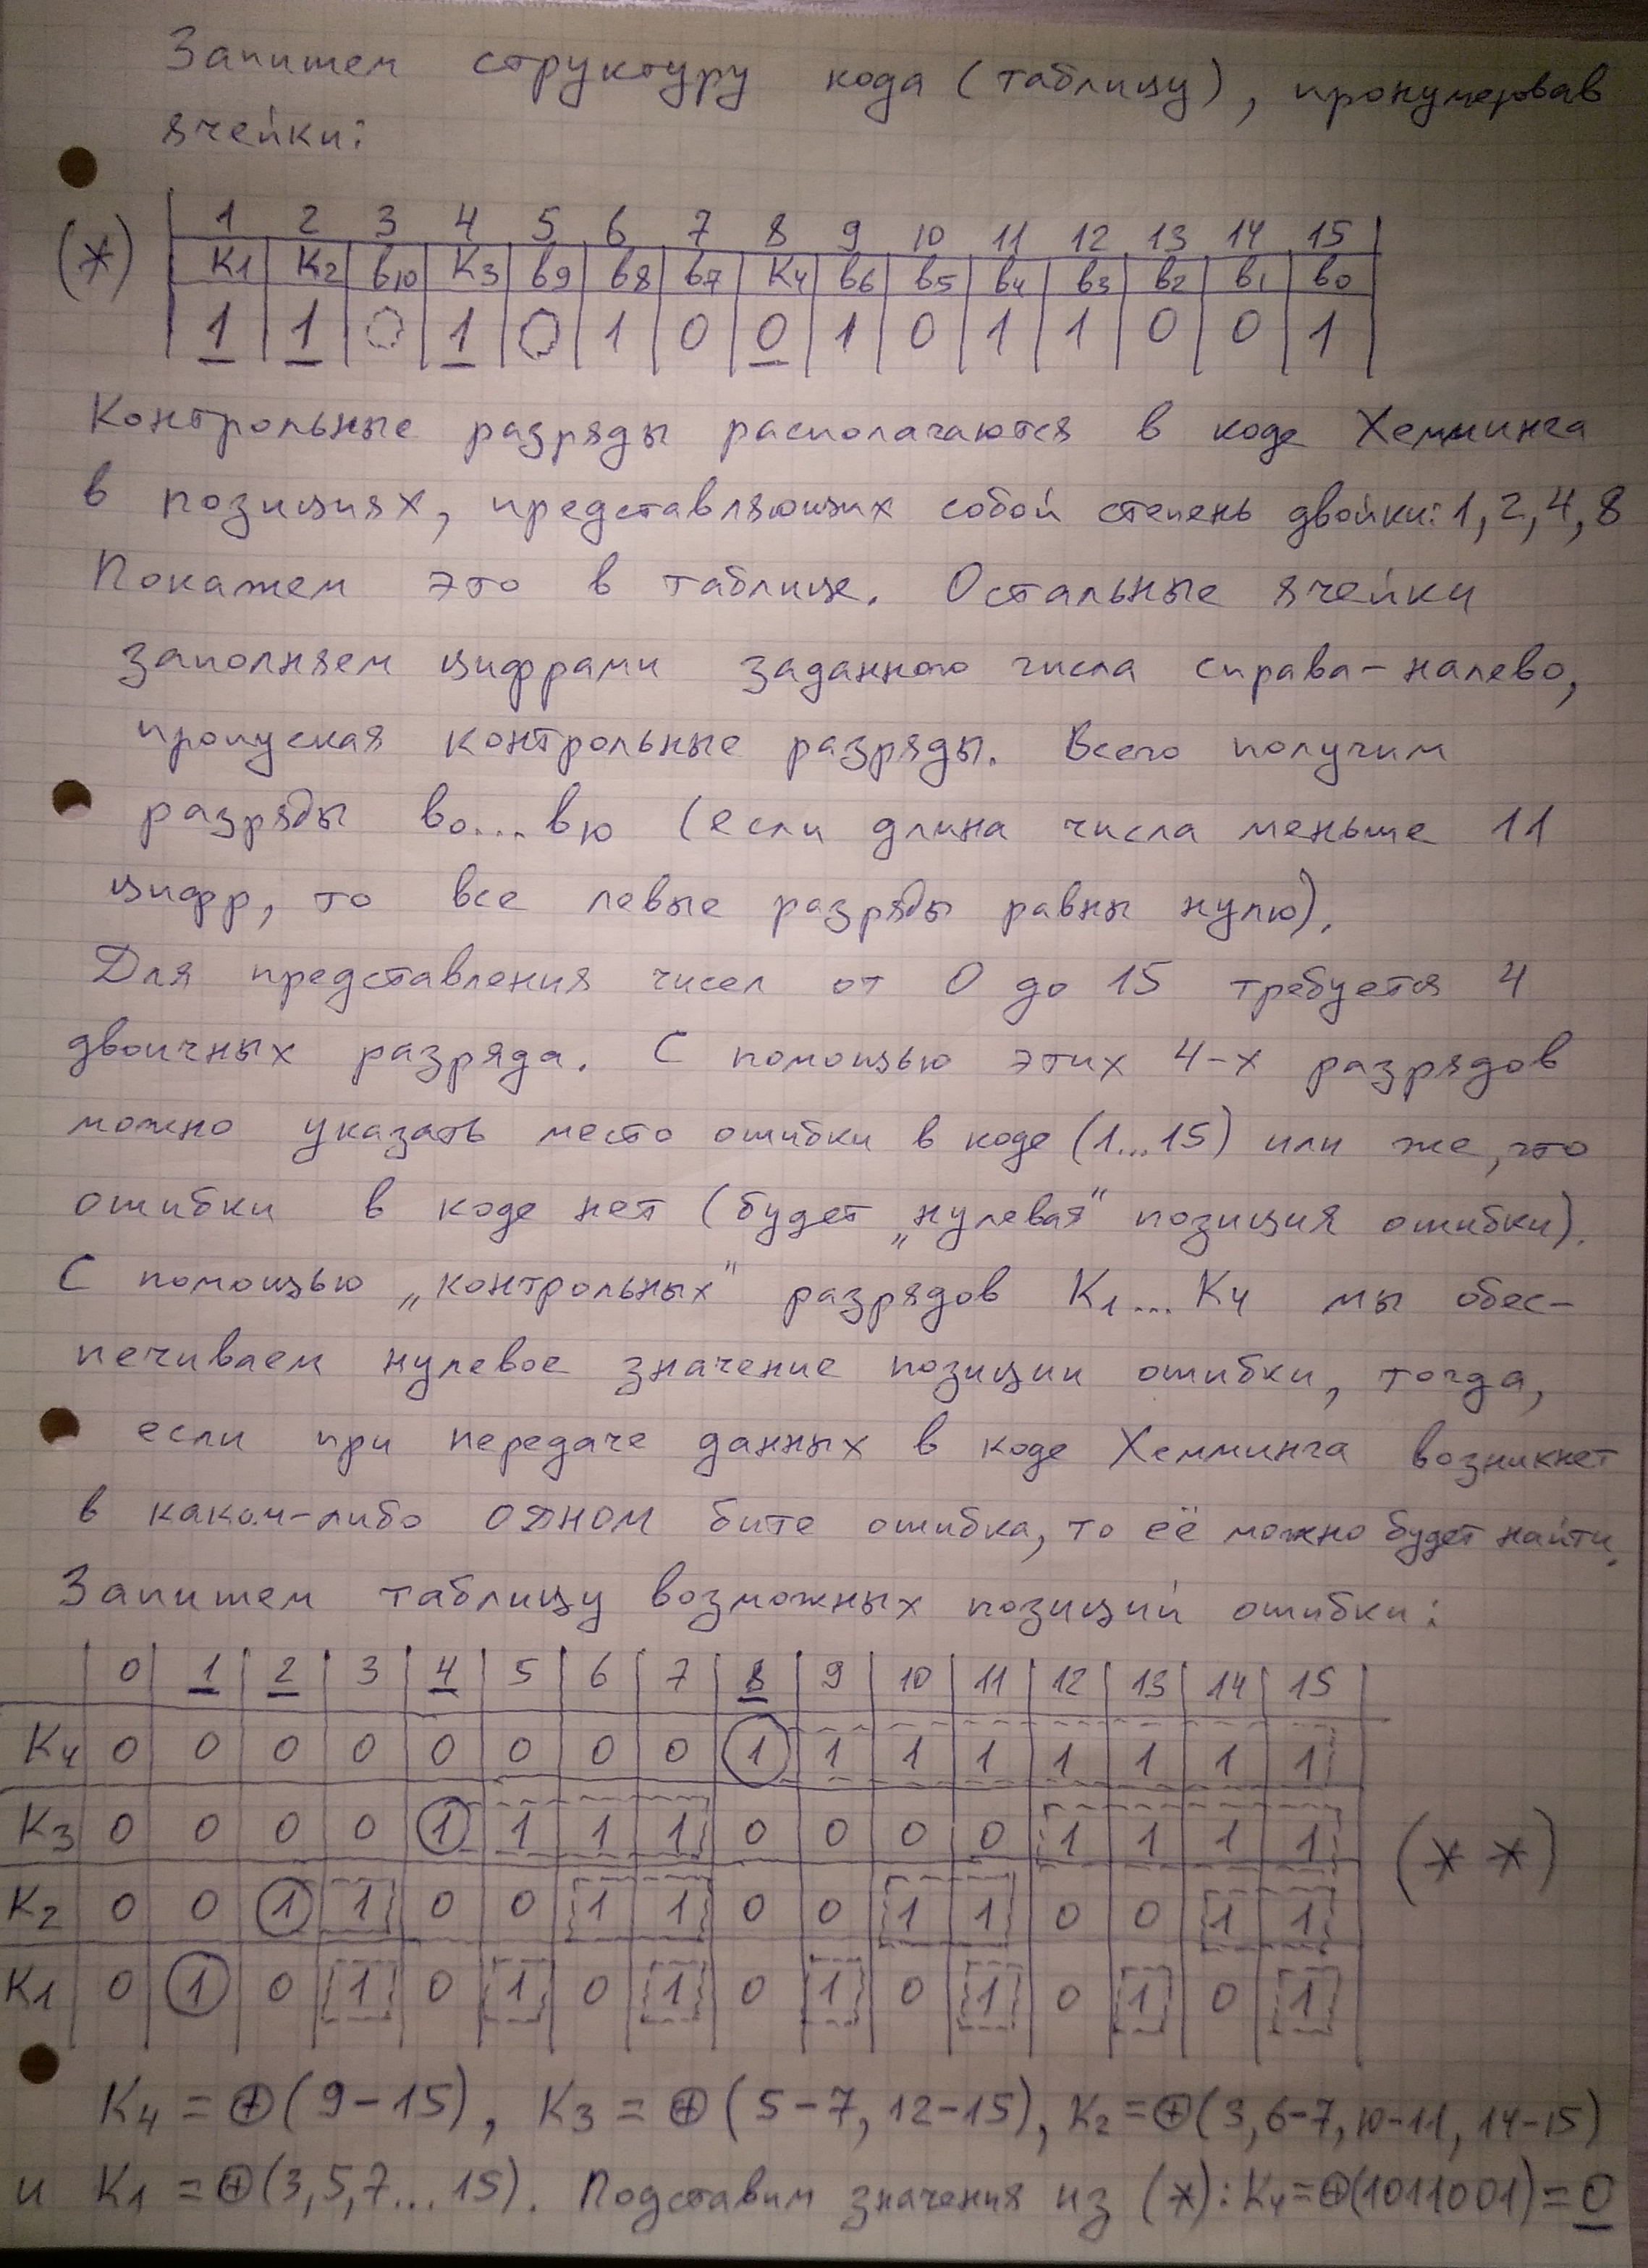 Запишем структуру кода (таблицу), пронумеровав
ячейки:
1 2 3 4 5 6 7 8 9 10 11 12 13 14 15
(*) K1 K2 b10 K3 b9 b8 b7 K4 b6 b5 b4 b3 b2 b1 b0
1 1 0 1 0 1 0 0 1 0 1 1 0 0 1
Контрольные разряды располагаются в коде Хемминга
в позициях, представляющих собой степень двойки: 1, 2, 4, 8
Покажем это в таблице. Остальные ячейки
заполняем цифрами заданного числа справа-налево,
пропуская контрольные разряды. Всего получим
разряды b0...b10 (если длина числа меньше 11
цифр, то все левые разряды равны нулю).
Для представления чисел от 0 до 15 требуется 4
двоичных разряда. С помощью этих 4-х разрядов
можно указать место ошибки в коде (1...15) или же, что
ошибки в коде нет (будет „нулевая" позиция ошибки).
С помощью „контрольных" разрядов K1...K4 мы обес-
печиваем нулевое значение позиции ошибки, тогда,
если при передаче данных в коде Хемминга возникнет
в каком-либо ОДНОМ бите ошибка, то её можно будет найти.
Запишем таблицу возможных позиций ошибки:
0 1 2 3 4 5 6 7 8 9 10 11 12 13 14 15
K4 0 0 0 0 0 0 0 0 1 1 1 1 1 1 1 1
K3 0 0 0 0 1 1 1 1 0 0 0 0 1 1 1 1 (**)
K2 0 0 1 1 0 0 1 1 0 0 1 1 0 0 1 1
K1 0 1 0 1 0 1 0 1 0 1 0 1 0 1 0 1
K4 = ⊕(9-15), K3 = ⊕(5-7, 12-15), K2 = ⊕(3, 6-7, 10-11, 14-15)
и K1 = ⊕(3, 5, 7...15). Подставим значения из (*): K4=⊕(1011001)=0